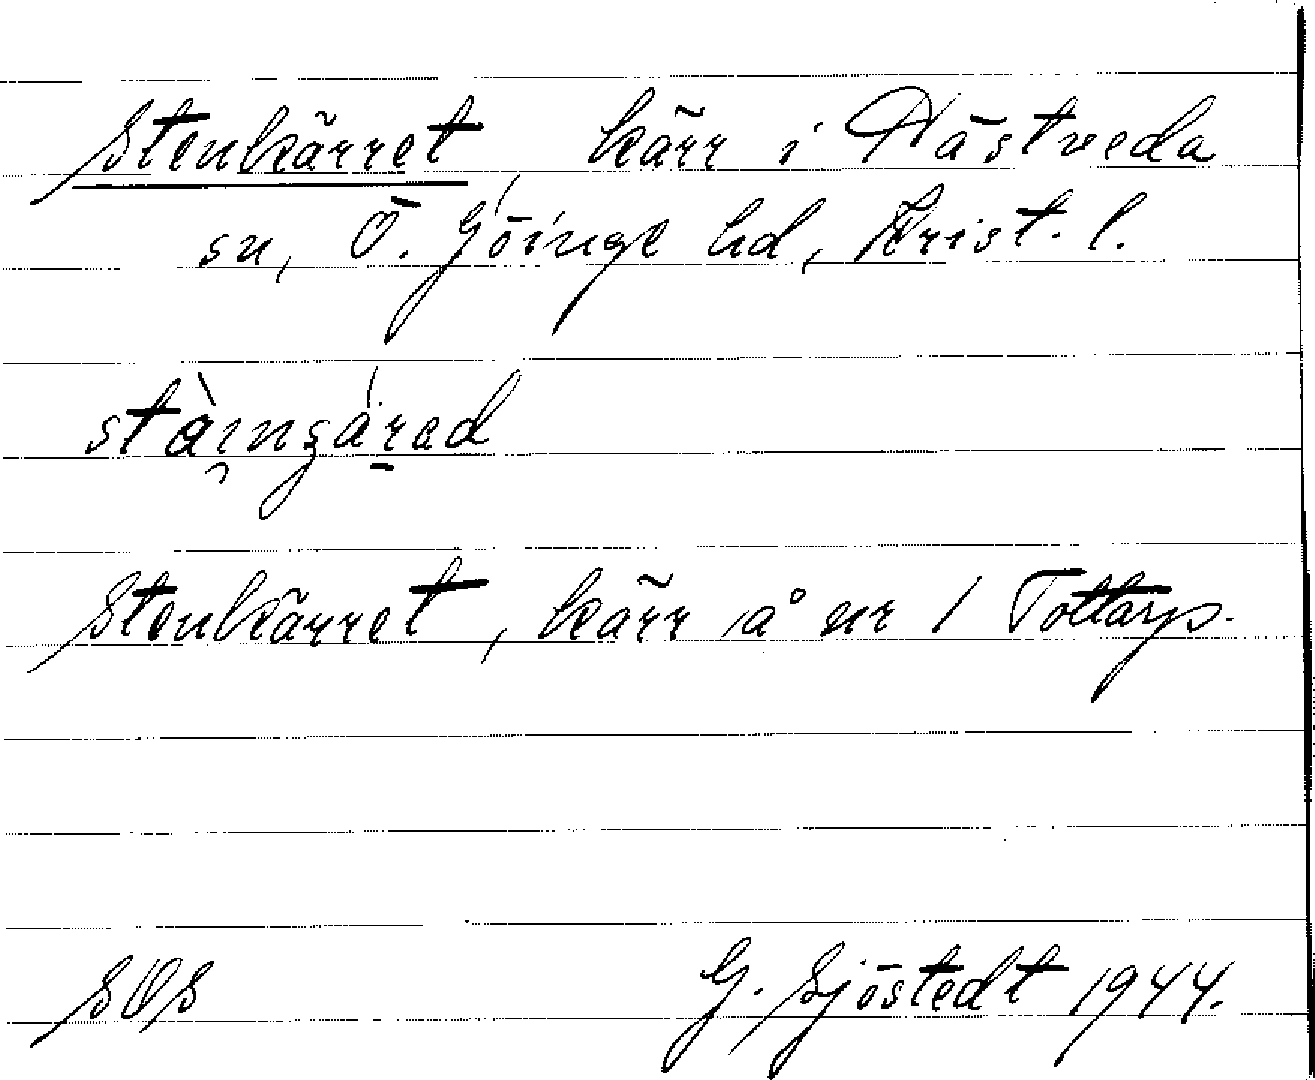 Stenkärret kärr i Hästveda
sn, Ö. Göinge hd, Krist. l.
Stenkärret, kärr å nr 1 Tottarp.
SOS G. Sjöstedt 1944.